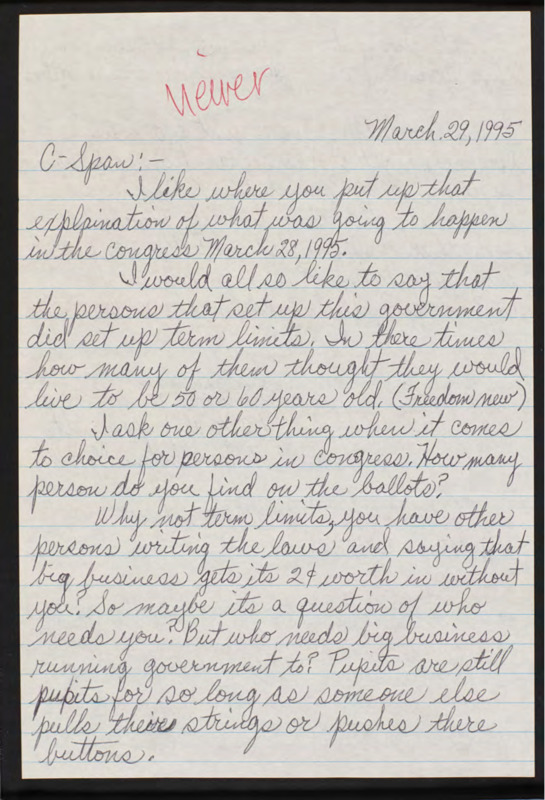 viewer
March 29, 1995
C-Span:-
I like where you put up that
explaination of what was going to happen
in the congress March 28, 1995.
I would all so like to say that
the persons that set up this government
did set up term limits. In there times
how many of them thought they would
live to be 50 or 60 years old. (Freedom new)
I ask one other thing when it comes
to choice for persons in congress. How many
person do you find on the ballots?
Why not term limits, you have other
persons writing the laws and saying that
big business gets its 2¢ worth in without
you? So maybe its a question of who
needs you? But who needs big business
running government to? Pupits are still
pupits for so long as someone else
pulls their strings or pushes there
buttons.